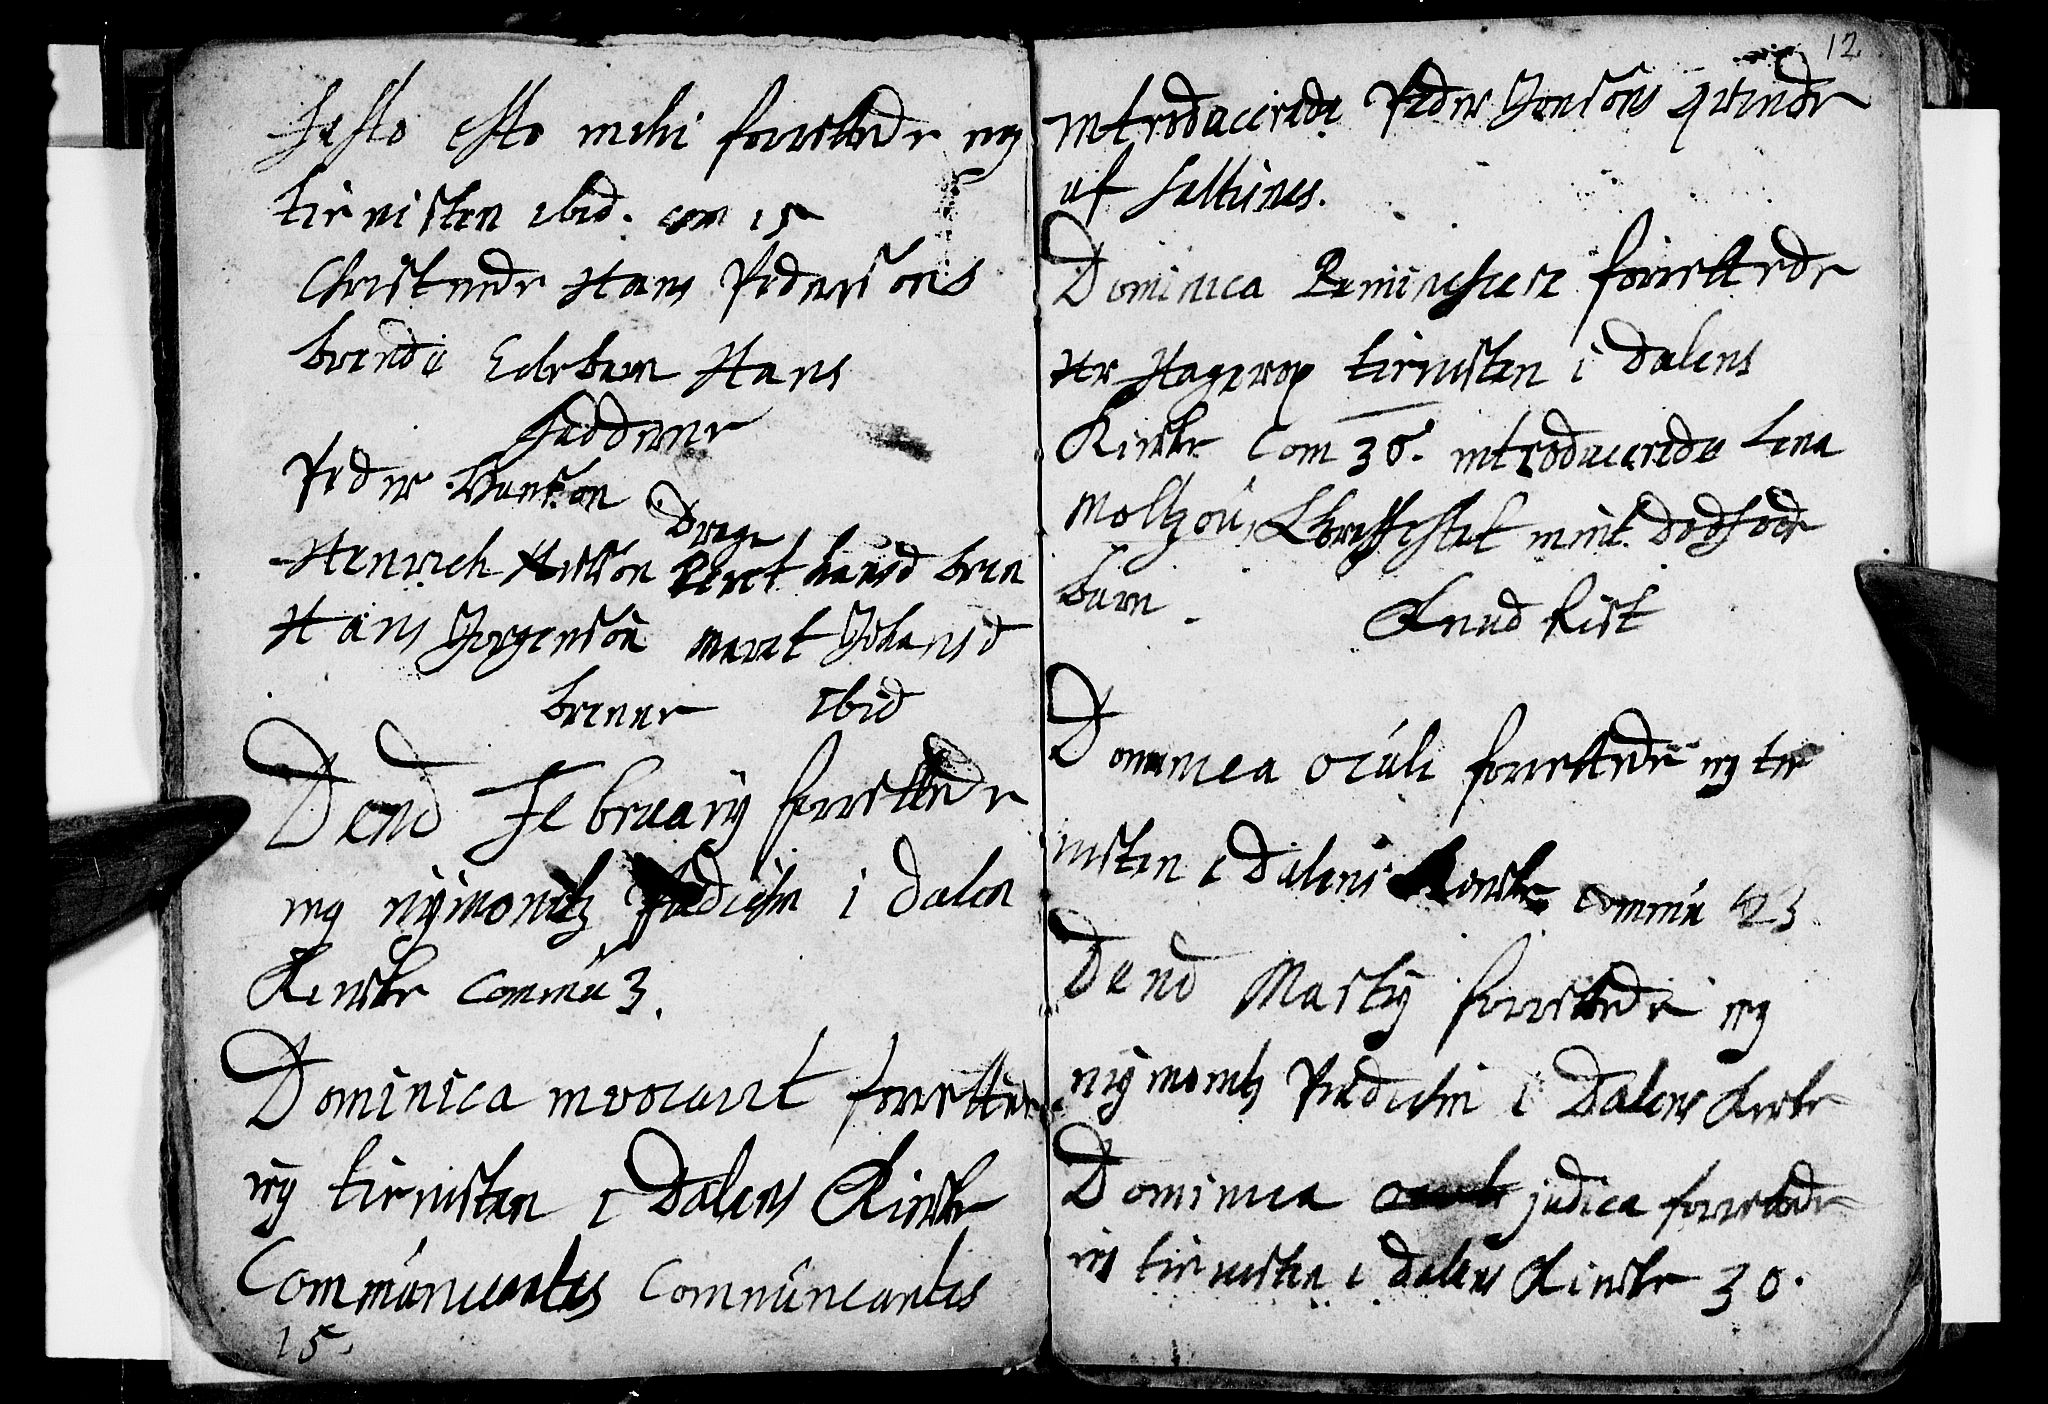 Festo esto mihi forrettede ieg
tienisten ibid. com 15
Christnede Hans Pedersøns
brende Echebarn Hans
Fadderne
Peder Hanson
Drage
Henrich Nielson Beret hansd bren
Hans Jorgenson Maret Johansd
brenne ibid
Dend February forrettede
ieg nÿmonitz Prædichen i Dalen
Kirche Commu 3.
Dominica invocavit forrettede
ieg tienisten i Dalens Kirche
Communicantes Communicantes
15.
12
introducerede Peder Jonsøns qvinde
af Saltines.
Dominica Reminischere forrettede
Hr Hagerop tienisten i Dalens
Kirche Com 36. introducerede Lena
Moltzou, dødfødde
barn.
Knud Rist
Dominica oculi forrettede ieg tie
nisten i Dalens Kirche Commu 23
Dend Marty forrettede ieg
nÿmonitz Prædichen i Dalens Kirche
Dominica judica forrettede
ieg tienisten i Dalens Kirche 30.